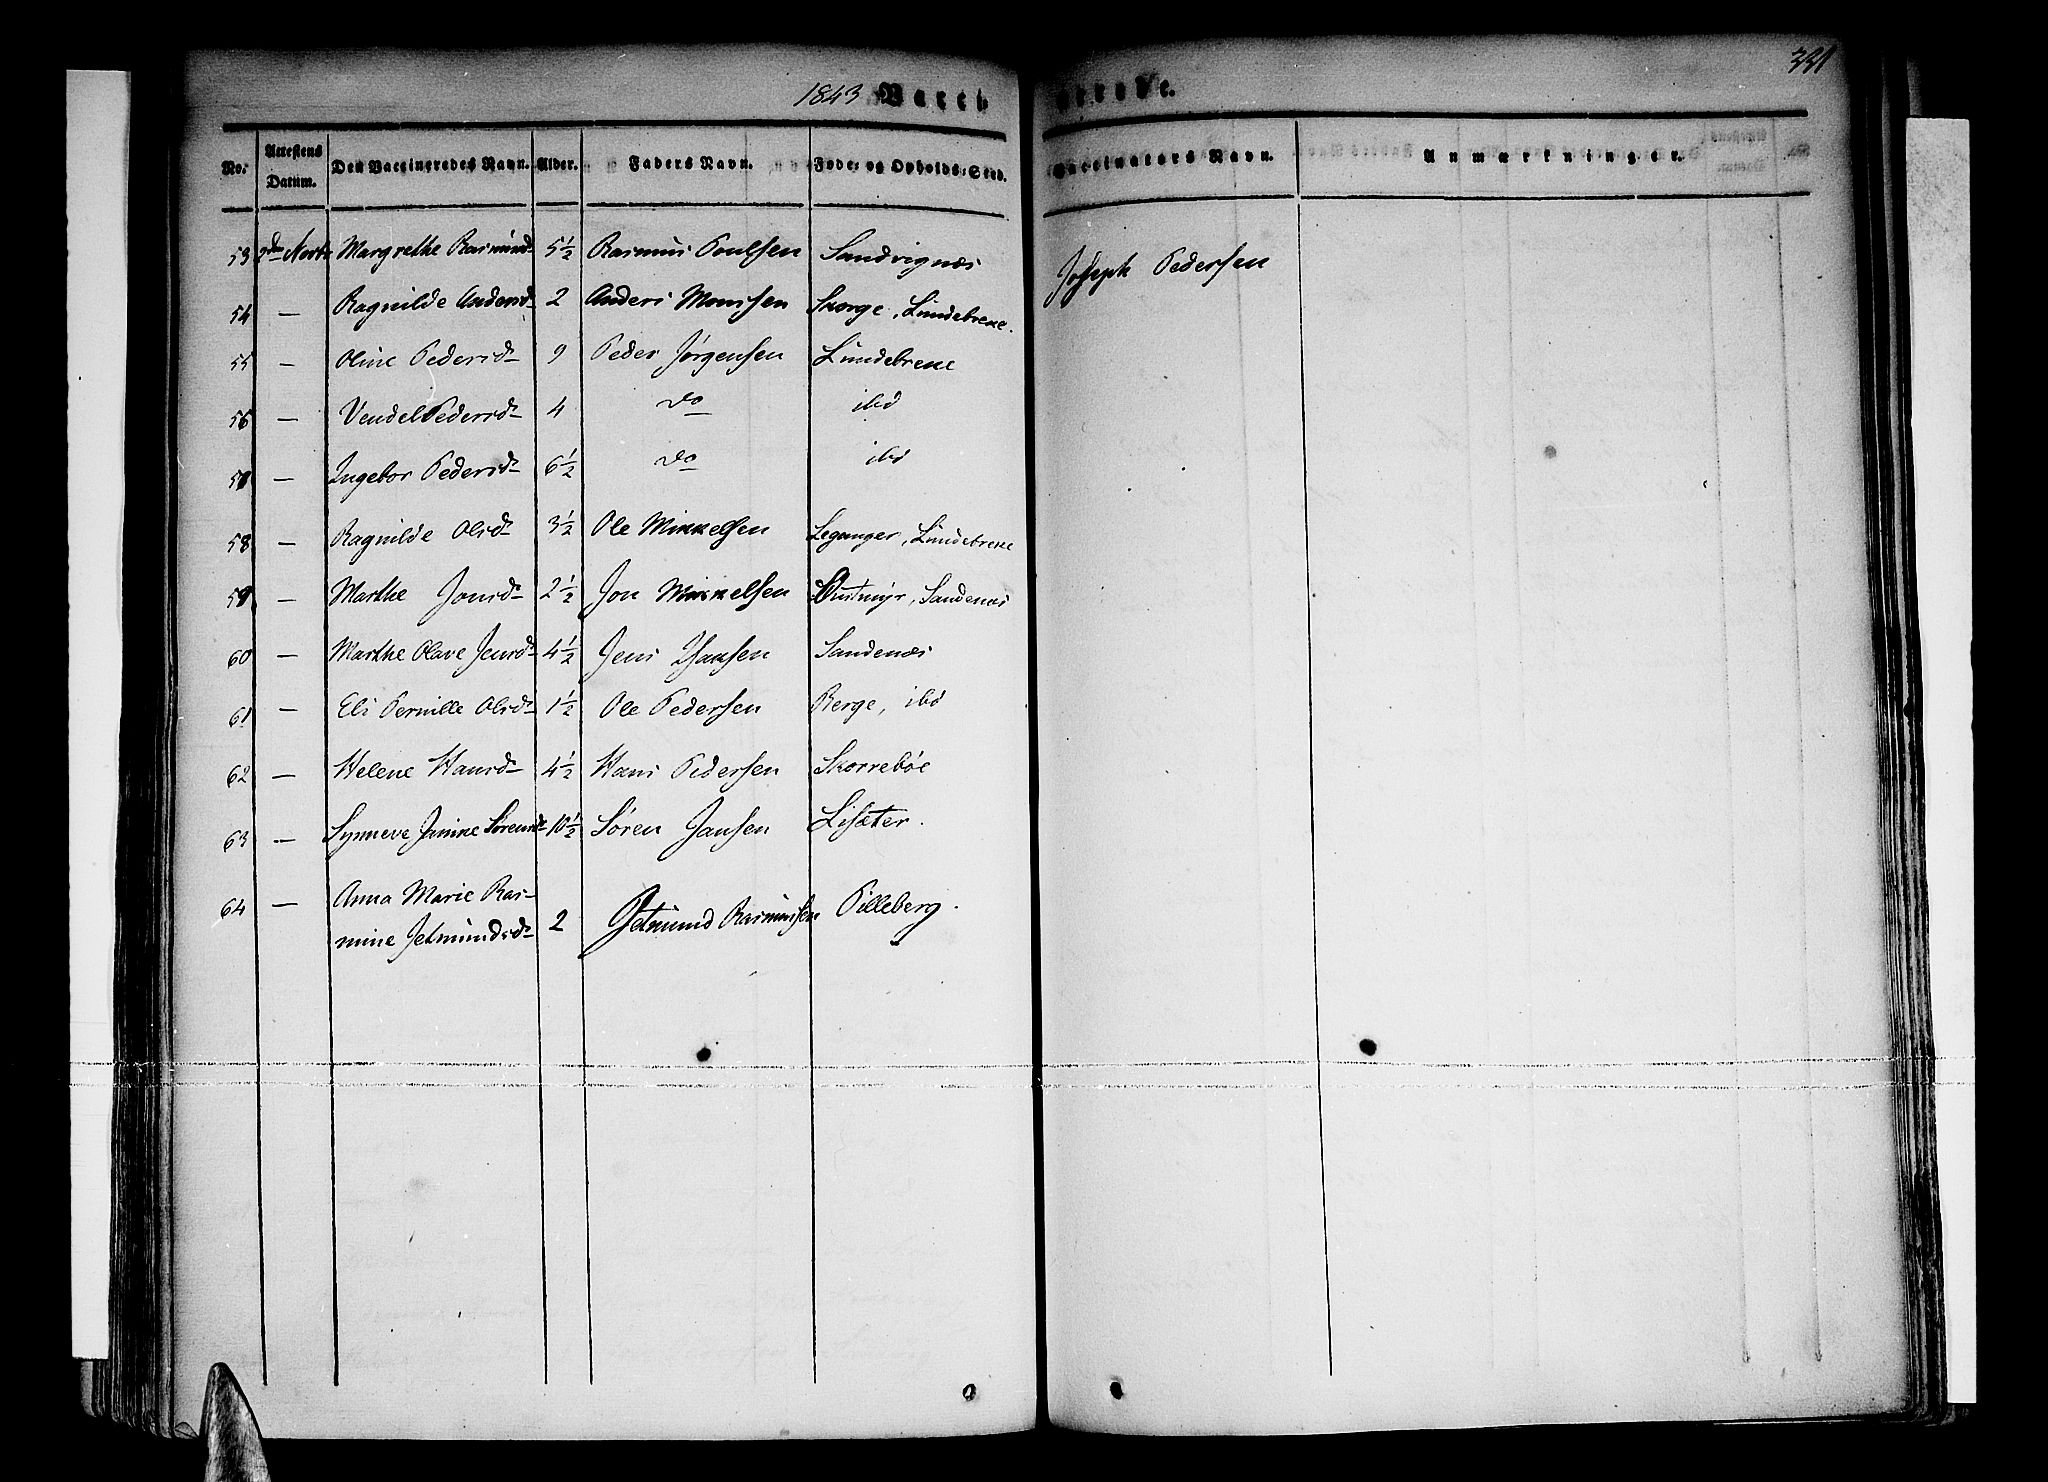 331
1843 Vacci nerede.
No. Attestens Datum. Den Vaccineredes Navn. Alder. Faders Navn. Føde- og Opholds-Sted. Vaccinateurs Navn. Anmærkninger.
53 Margrethe Rasmusd 5½ Rasmus Poulsen Sandvignæs Joseph Pedersen
54 — Ragnilde Andersd 2 Anders Monssen Skorge, Lundebrexe.
55 — Oline Pedersd 9 Peder Jørgensen Lundebrexe
56 — Vendel Pedersd 4 do ibd
57 — Ingebor Pedersd 6½ do ibd
58 — Ragnilde Olsd 3½ Ole Mikkelsen Leganger, Lundebrexe
59 — Marthe Jonsd 2½ Jon Mikkelsen Sandenæs
60 — Marthe Olave Jensd 4½ Jens Hansen Sandenæs
61 — Eli Pernille Olsd 1½ Ole Pedersen Berge, ibd
62 — Helene Hansd 4½ Hans Pedersen Skorrebøe
63 — Synneve Sørensd 10½ Søren Jansen Lisæter.
64 — Anna Marie Ras-
mine Jetmundsd 2 Jetmund Rasmussen Pilleberg.